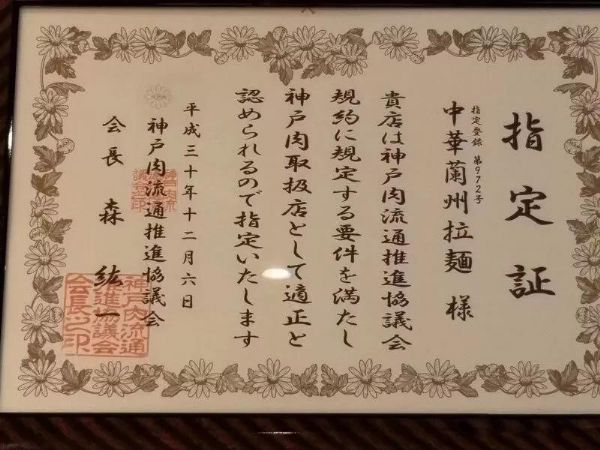 指定証
指定登録 第972号
中華蘭州拉麺 様
貴店は神戸肉流通推進協議会
規約に規定する要件を満たし
神戸肉取扱店として適正と
認められるので指定いたします
平成三十年十二月六日
神戸肉流通推進協議会
会長 森 紘一
神戸肉流通
推進協議会
会長之印